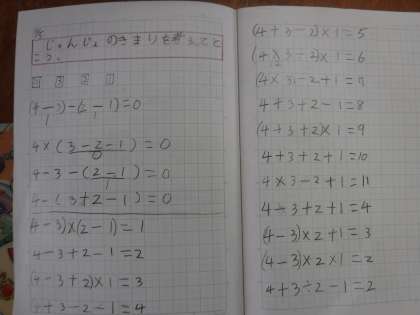 じゅんじょのきまりを考えてと
こう。
4 3 2 1
(4-3)-(2-1)=0
1 1
4×(3-2-1)=0
0
4-3-(2-1)=0
1
4-(3+2-1)=0
(4-3)×(2-1)=1
4-3+2-1=2
(4-3+2)×1=3
4+3-2-1=4
(4+3-2)×1=5
×1=6
-2+1=
4+3+2-1=8
(4+3+2)×1=9
4+3+2+1=10
4×3-2+1=11
4-3+2+1=4
(4-3)×2+1=3
(4-3)×2×1=2
2-1=2